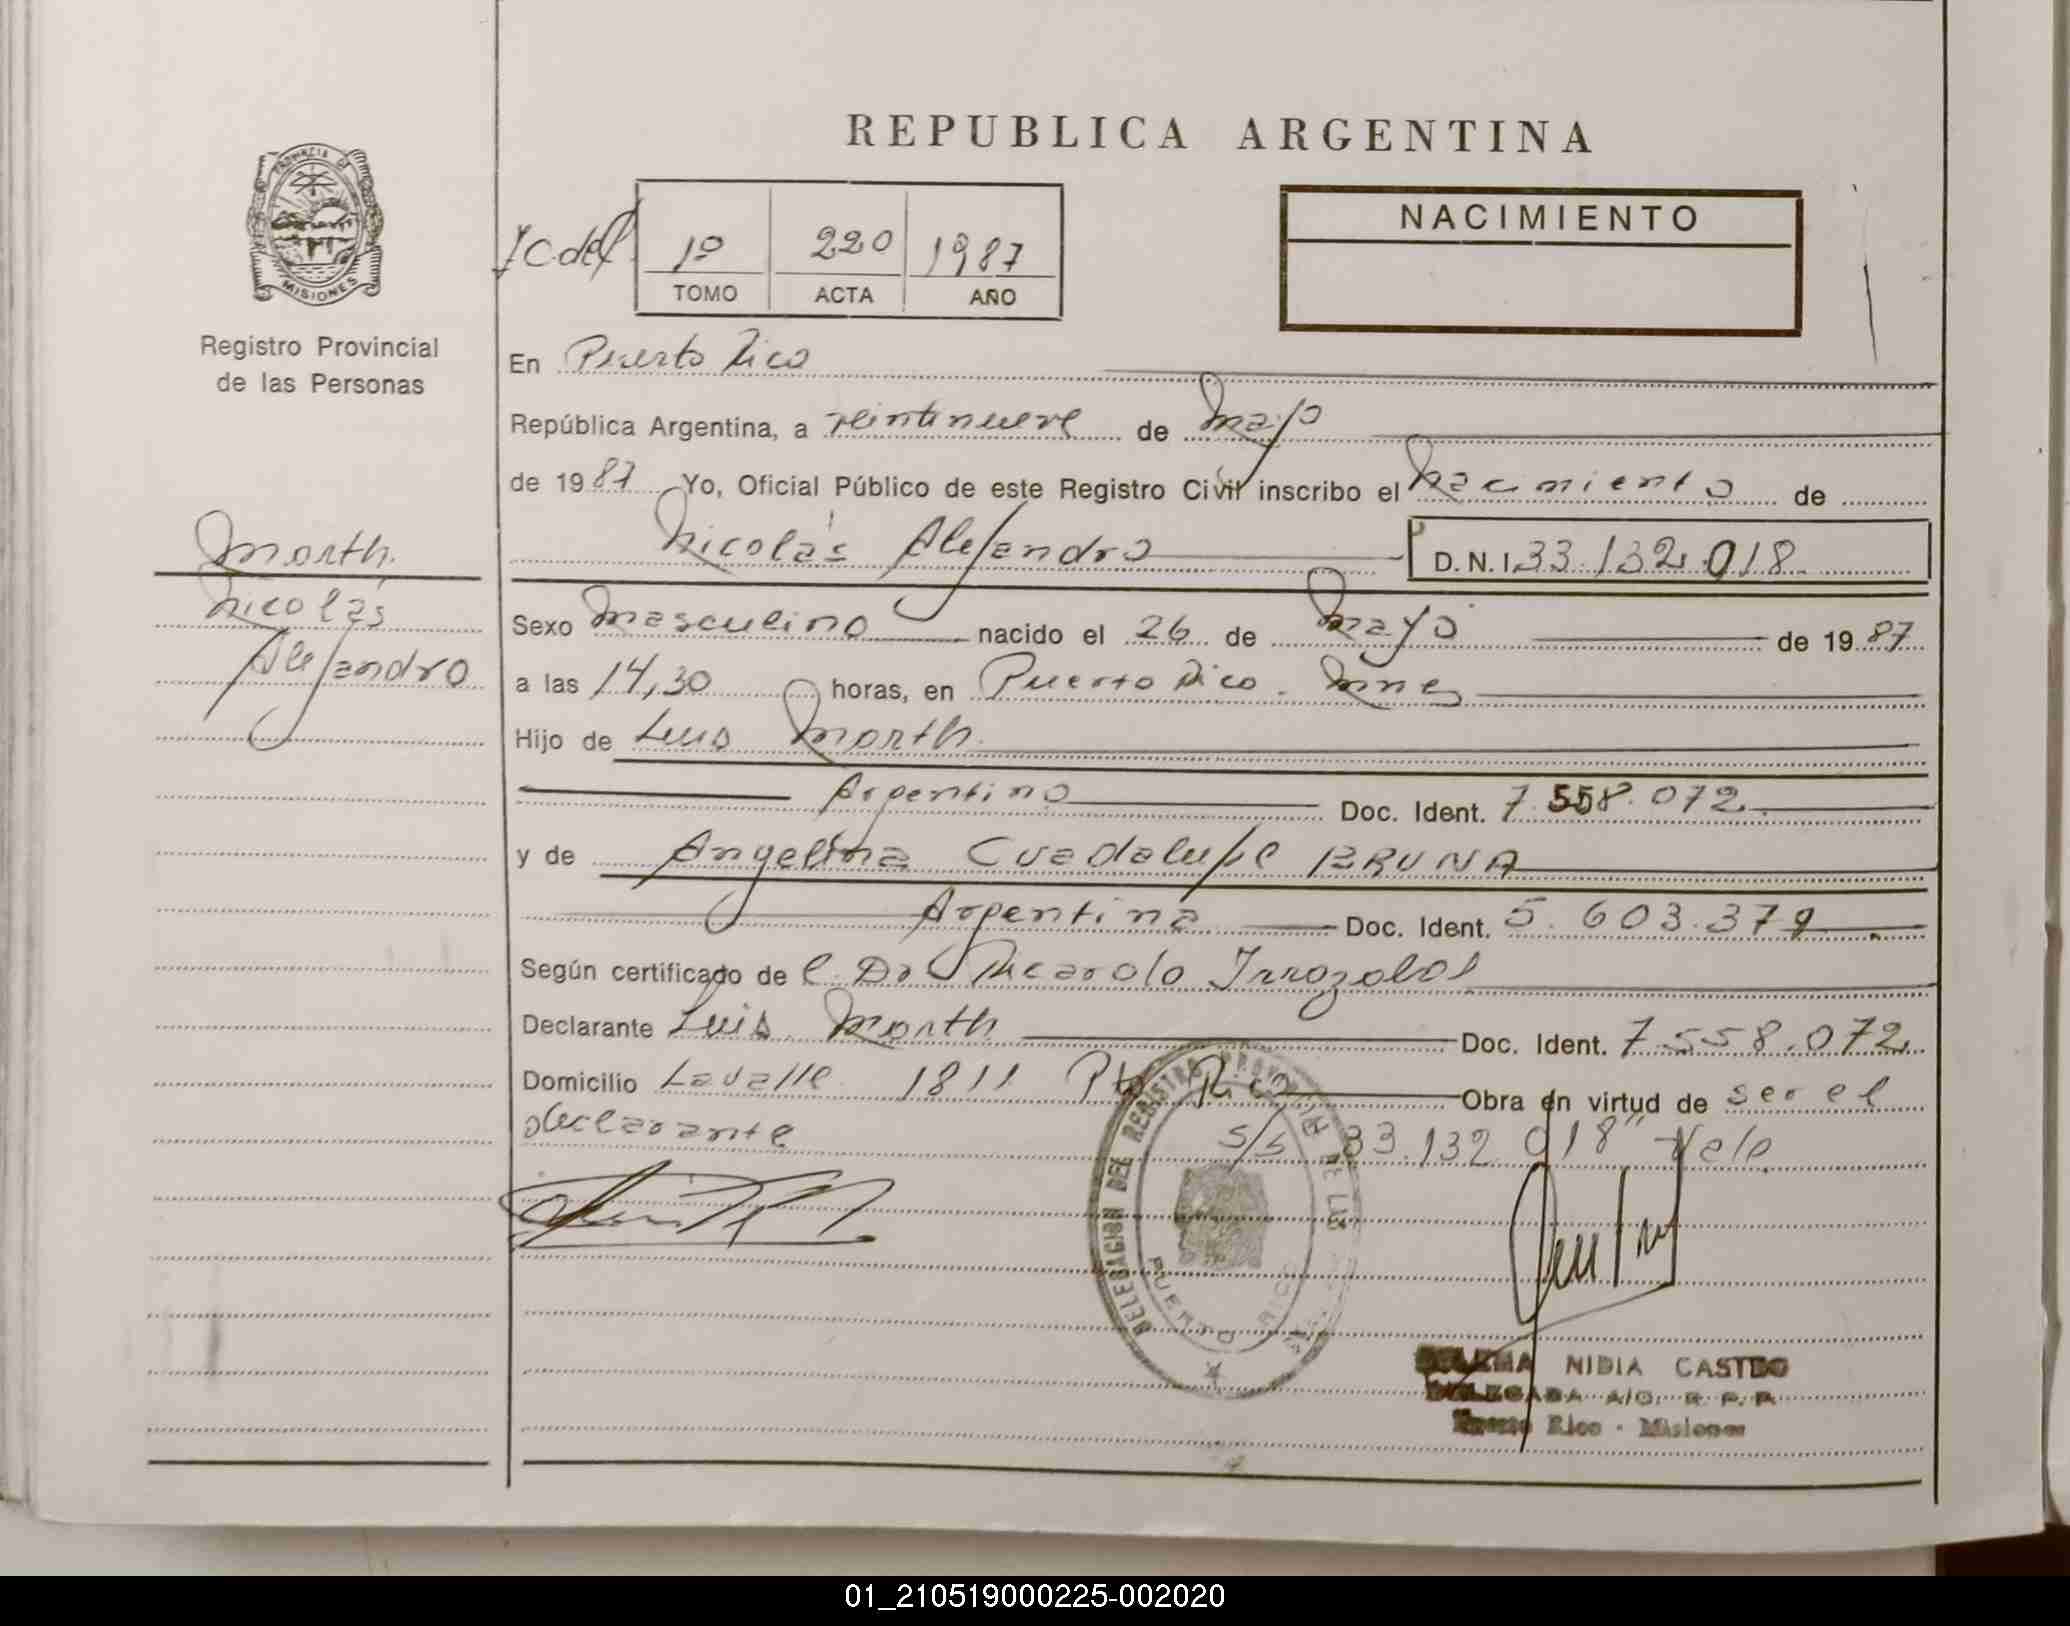 REPUBLICA ARGENTINA
PROVINCIA DE
MISIONES
Registro Provincial
de las Personas
1º 220 1987
TOMO ACTA AÑO
NACIMIENTO
En Puerto Rico
República Argentina, a veintinueve de Mayo
de 1987 Yo, Oficial Público de este Registro Civil inscribo el Nacimiento de
Nicolás Alejandro D.N.I. 33.132.018
Morth
Nicolás
Alejandro
Sexo Masculino nacido el 26 de Mayo de 1987
a las 14,30 horas, en Puerto Rico. Mnes
Hijo de Luis Morth
Argentino Doc. Ident. 7.558.072
y de Angelina Guadalupe BRUNA
Argentina Doc. Ident. 5.603.379
Según certificado de l Dr Ricardo Irrazabal
Declarante Luis Morth Doc. Ident. 7.558.072
Domicilio Lavalle 1811 Pto Rico Obra en virtud de ser el
declarante S/S 33.132.018" Vale
DELEGACION DEL REGISTRO PROVINCIAL DE LAS
PUERTO RICO
NIDIA CASTRO
DELEGADA A/C. R. P. P.
Puerto Rico - Misiones
01_210519000225-002020